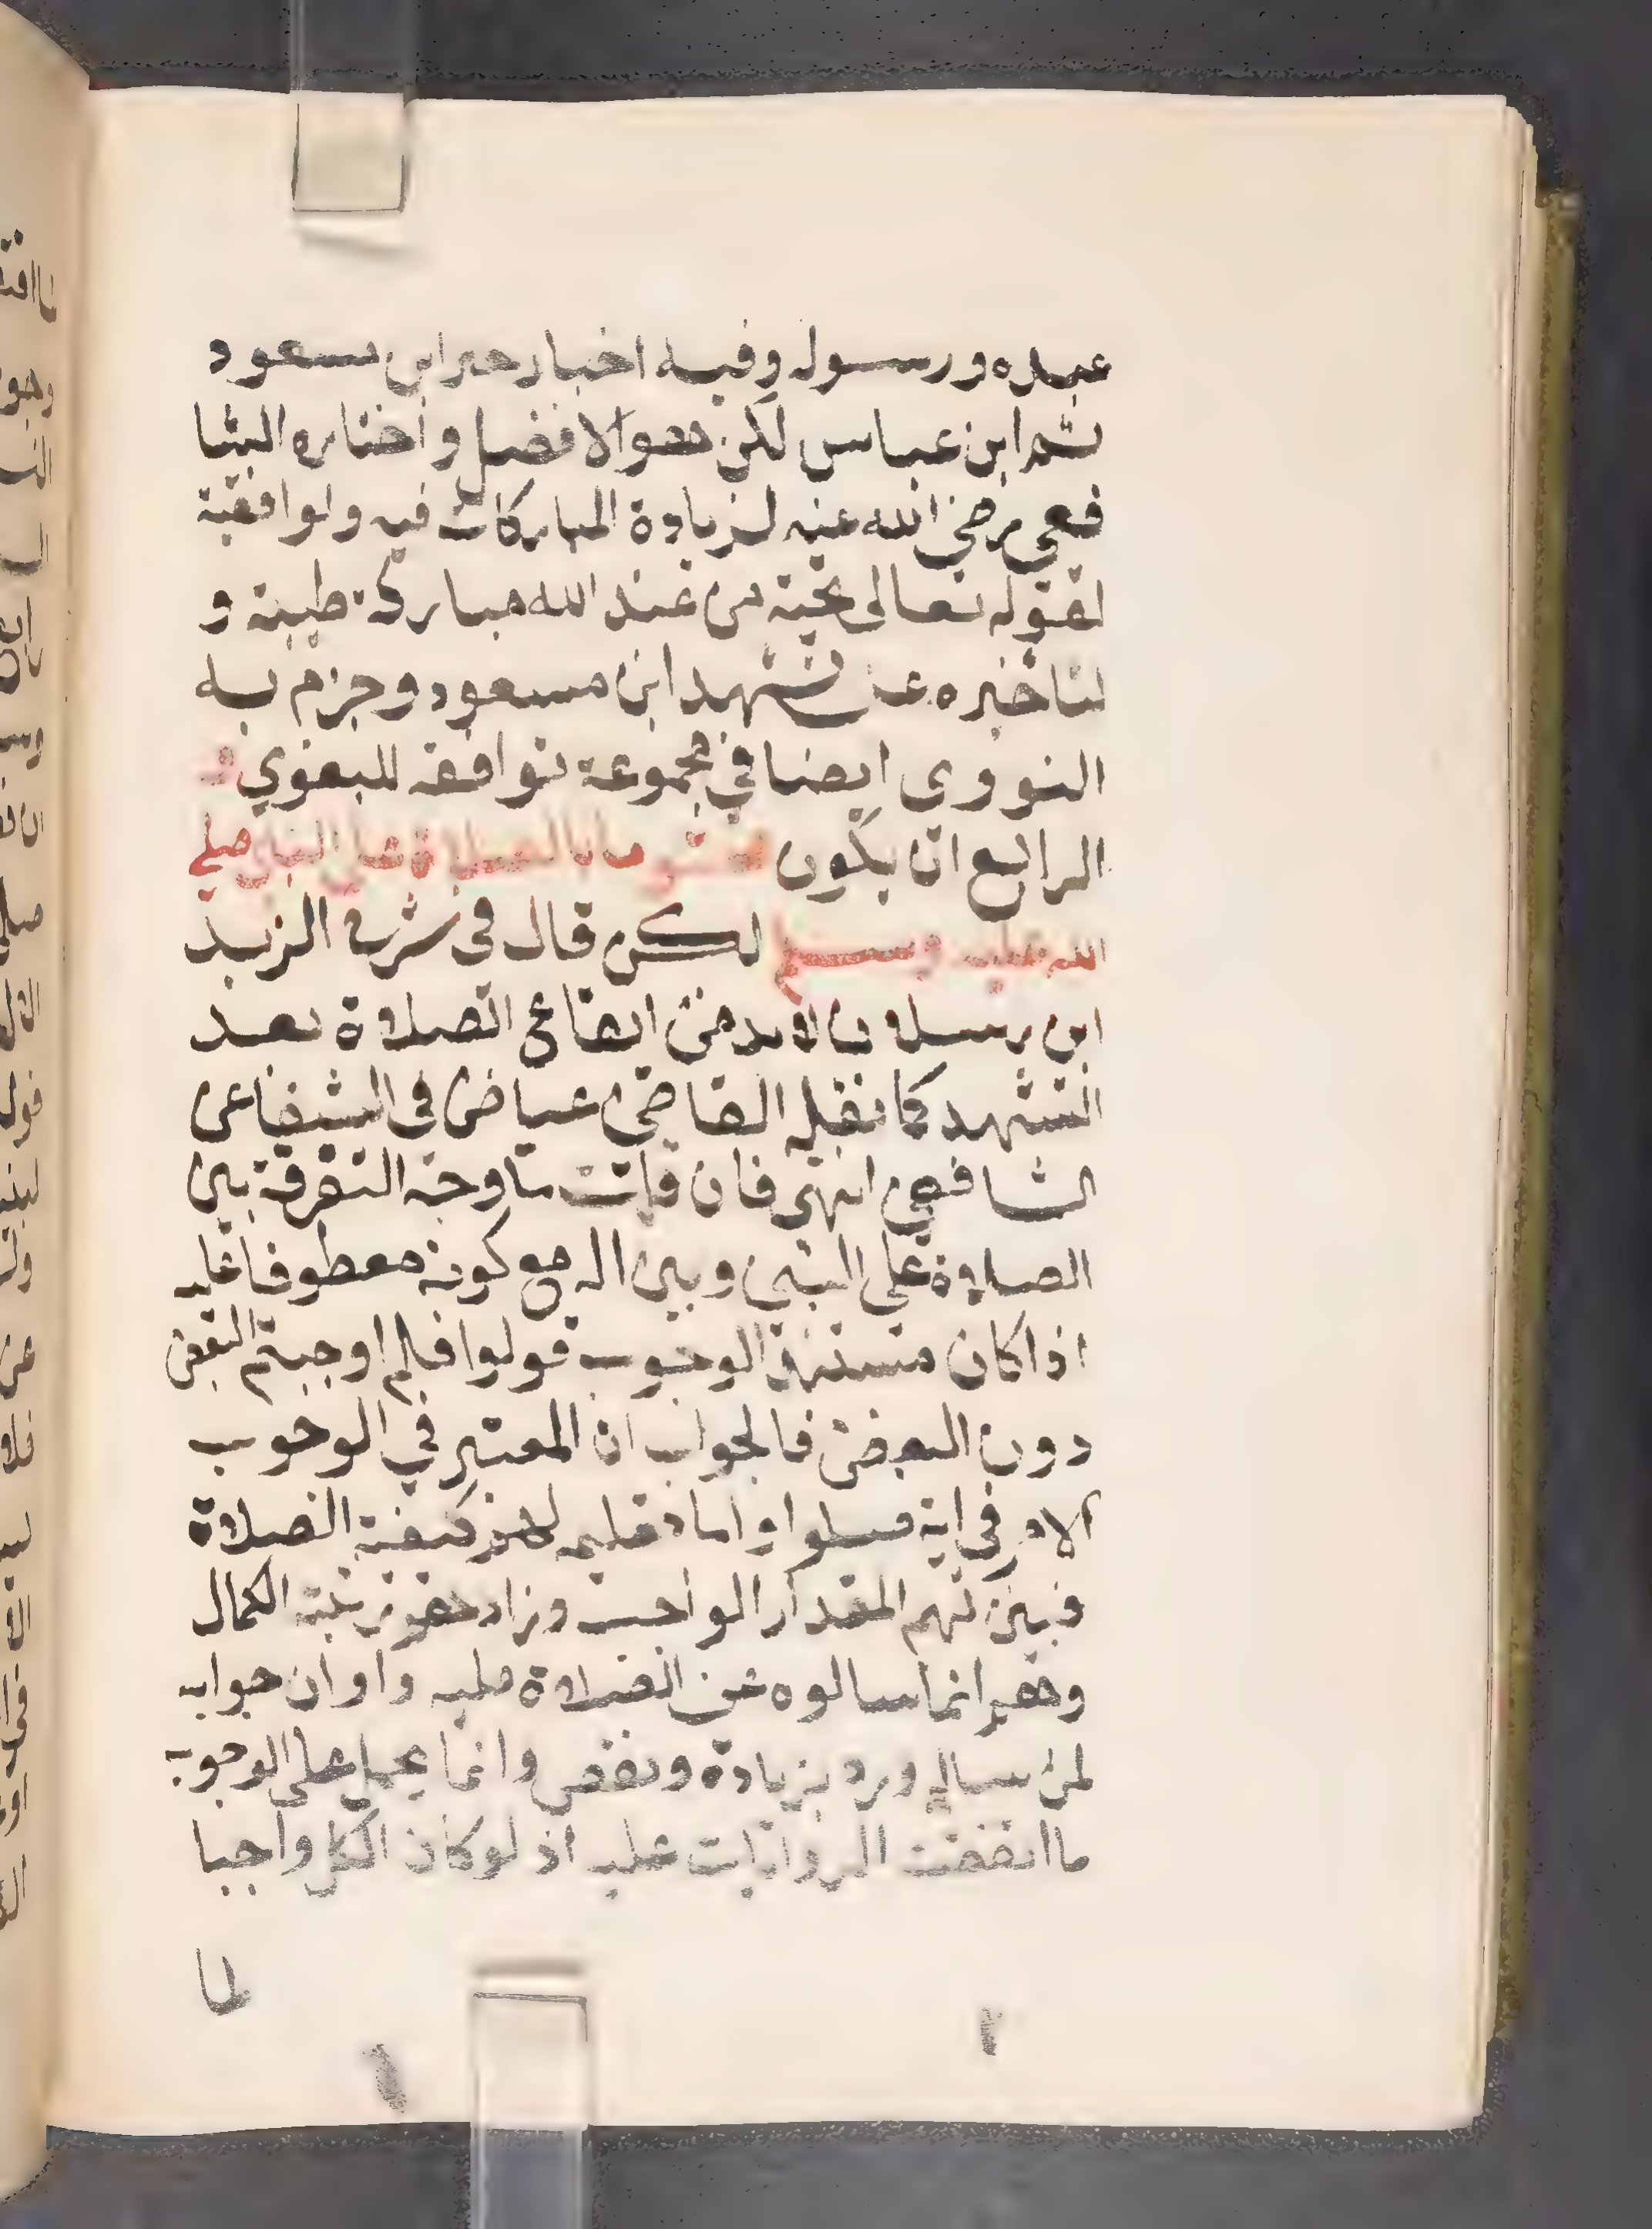 عبده ورسوله وفيه اخبار خبر ابن مسعود
ثم ابن عباس لكن هو الافضل واختاره الشا
فعي رضي الله عنه لزيادة المباركات فيه ولموافقته
لقوله تعالى تحية من عند الله مباركة طيبة و
لتاخيره عن تشهد ابن مسعود وجزم به
النووي ايضا في مجموعه توافقه للبغوي
الرابع ان يكون بالصلاة على النبي صلي
الله عليه وسلم لكن قال في شرح الزبد
ابن رسلان لابد من ايقاع الصلاة بعد
التشهد كما نقله القاضي عياض في الشفا عن
الشافعي انتهى فان قلت ما وجه التفرقة بين
الصلاة على النبي وبين الـه مع كونه معطوفا عليه
اذا كان مستند الوجوب قولوا فلم اوجبتم البعض
دون البعض فالجواب ان المعتبر في الوجوب
الامر في اية صلوا واما تعليمه لهم كيفية الصلاة
فبين لهم المقدار الواجب وزادهم رتبة الكمال
وهم انما سالوه عن الصلاة عليه وان جوابه
لمن ساله ورد بزيادة ونقص وانما يحمل على الوجوب
ما اتفقت الروايات عليه اذ لو كان الكل واجبا
لما